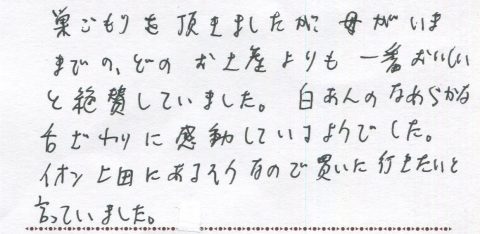 巣ごもりを頂きましたが、母がいま
までの、どのお土産よりも一番おいしい
と絶賛していました。白あんのなめらかな
舌ざわりに感動しているようでした。
イオン上田にあるそうなので買いに行きたいと
言っていました。